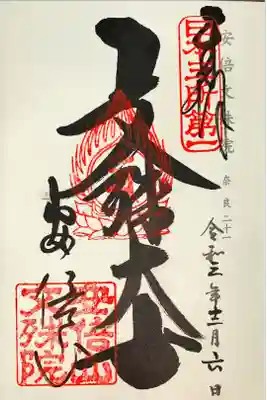 奉拝
安倍文殊院
奈良二十一
日本三所第一
文殊大士
安倍山
安倍山文殊院
令和三年十二月六日